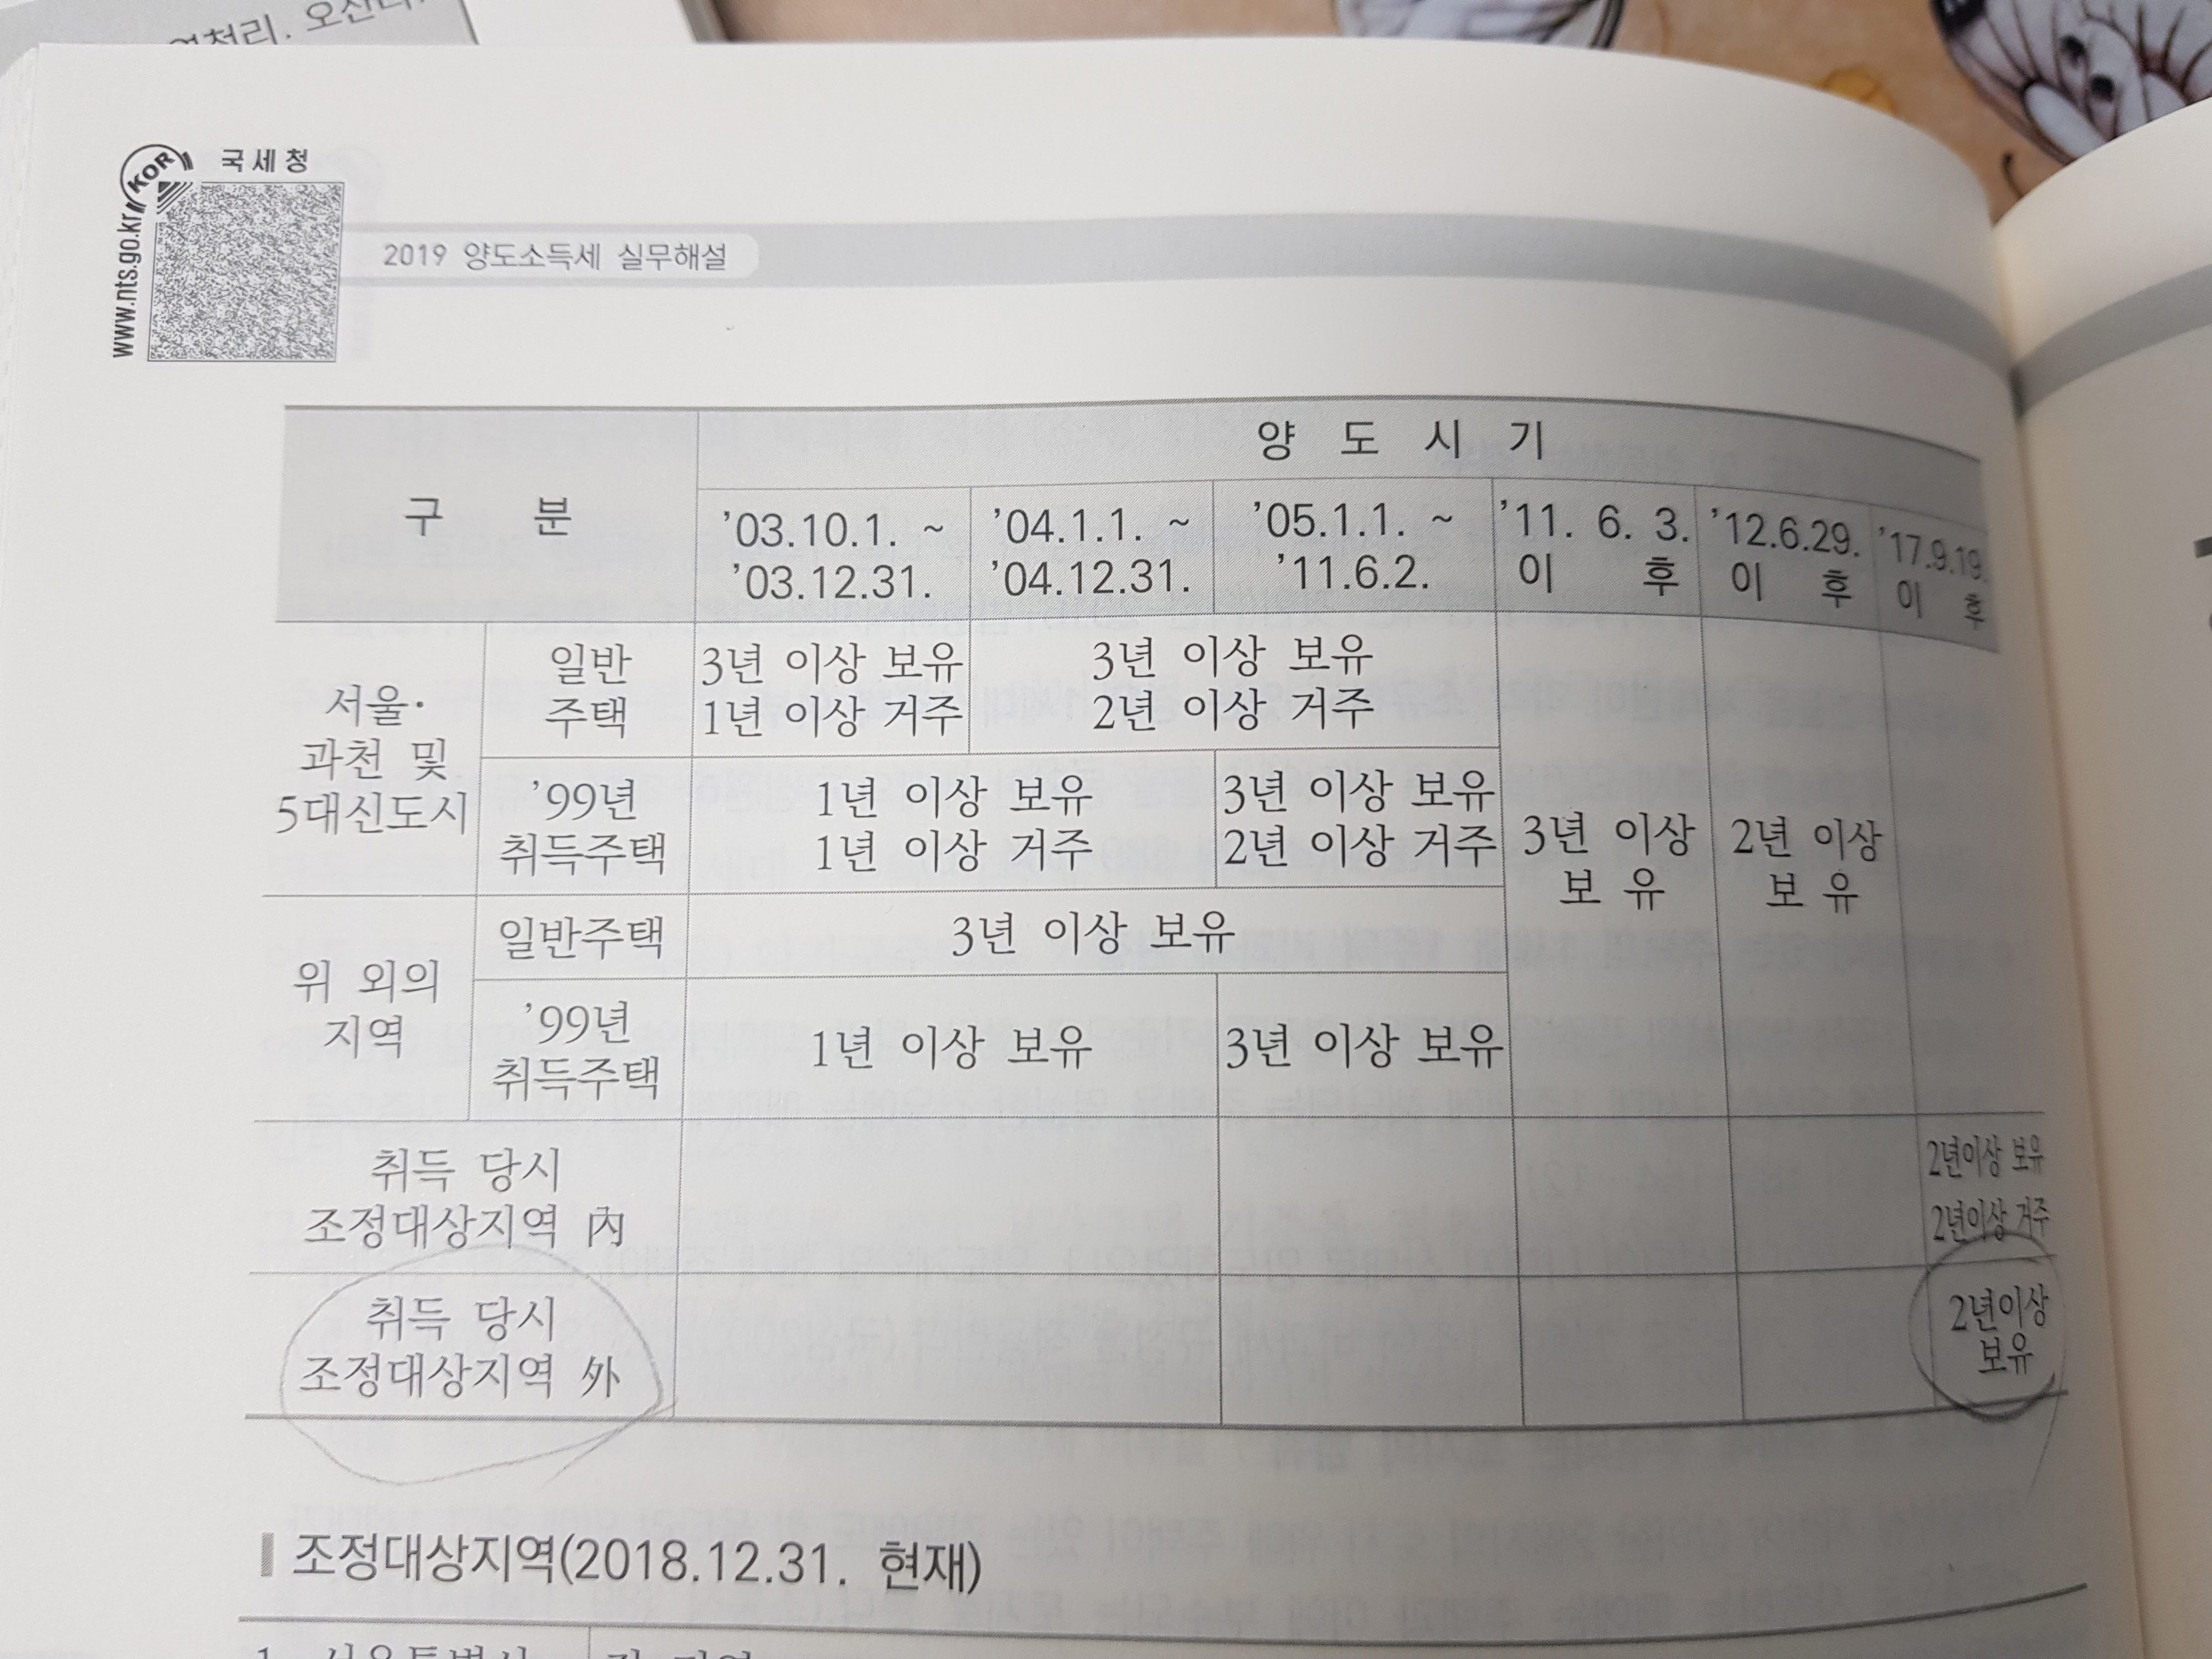 오산
국세청
KOR
www.nts.go.kr
2019 양도소득세 실무해설
구 분
양 도 시 기
'03.10.1. ~
'03.12.31.
'04.1.1. ~
'04.12.31.
'05.1.1. ~
'11.6.2.
'11. 6. 3.
이 후
'12.6.29.
이 후
'17.9.19.
이 후
서울·
과천 및
5대신도시
일반
주택
3년 이상 보유
1년 이상 거주
3년 이상 보유
2년 이상 거주
'99년
취득주택
1년 이상 보유
1년 이상 거주
3년 이상 보유
2년 이상 거주
3년 이상
보 유
2년 이상
보 유
위 외의
지역
일반주택
3년 이상 보유
'99년
취득주택
1년 이상 보유
3년 이상 보유
취득 당시
조정대상지역 內
2년이상 보유
2년이상 거주
취득 당시
조정대상지역 外
2년이상
보유
조정대상지역(2018.12.31. 현재)
1. 서울특별시
전 지역